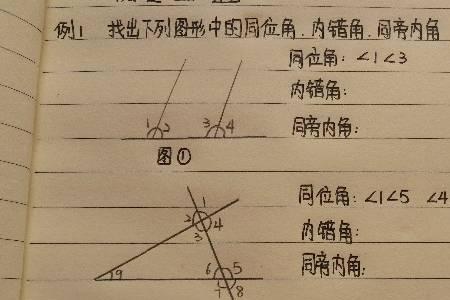 例1 找出下列图形中的同位角、内错角、同帝内角
同位角: ∠1∠3
内错角:
1 2 3 4
同帝内角:
图①
同位角: ∠1∠5 ∠4
1
2 4
3
内错角:
同帝内角:
9 6 5
7 8